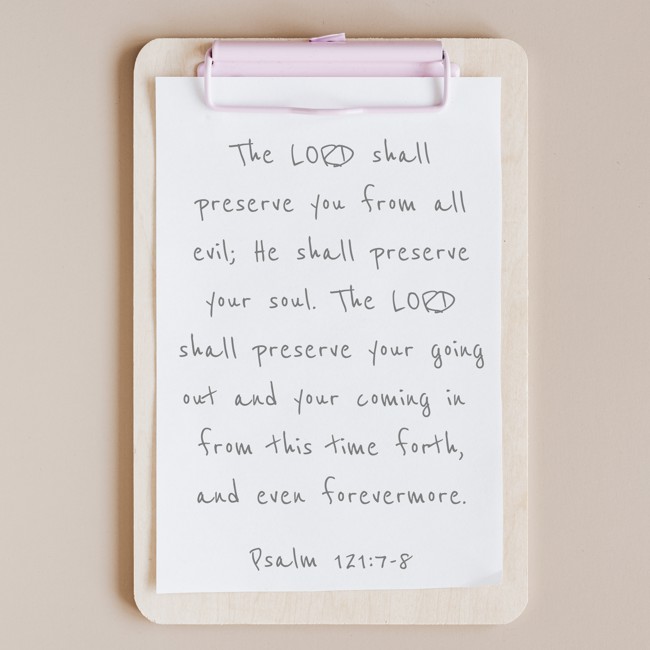 The LORD shall
preserve you from all
evil; He shall preserve
your soul. The LORD
shall preserve your going
out and your coming in
from this time forth,
and even forevermore.
Psalm 121:7-8